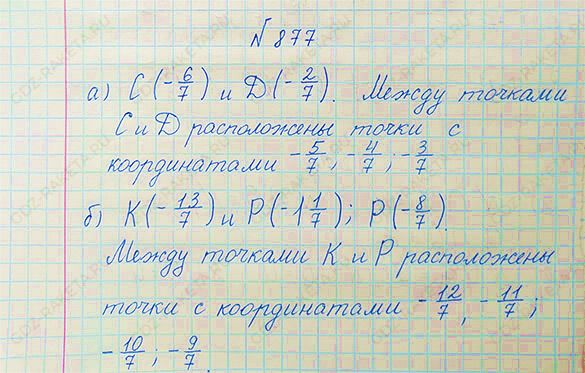 № 877
а) C (-6/7) и D (-2/7). Между точками
C и D расположены точки с
координатами -5/7; -4/7; -3/7
б) K (-13/7) и P (-1 1/7); P (-8/7).
Между точками K и P расположены
точки с координатами -12/7, -11/7;
-10/7; -9/7